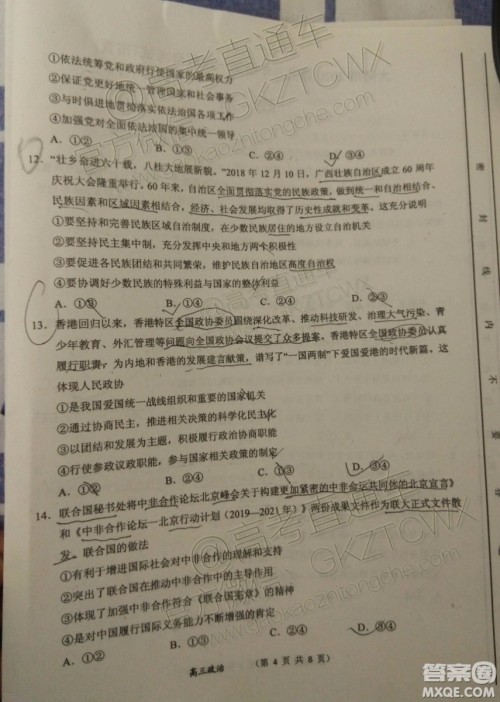 ①依法统筹党和政府行使国家的最高权力
②保证党更好地统一管理国家和社会事务
③与时俱进地贯彻落实依法治国各项工作
④加强党对全面依法治国的集中统一领导
A．①② B．①③ C．②④ D．③④
12．“壮乡奋进六十载，八桂大地展新貌。”2018年12月10日，广西壮族自治区成立60周年
庆祝大会隆重举行。60年来，自治区全面贯彻落实党的民族政策，做到统一和自治相结合、
民族因素和区域因素相结合，经济、社会发展等各方面都取得了历史性成就和变革。这充分说明
①要坚持和完善民族区域自治制度，在少数民族居住的地方设立自治机关
②要坚持民主集中制，充分发挥少数民族干部和群众的积极性
③要促进各民族团结和共同繁荣，维护民族自治区域高度自治权
④要协调好少数民族的特殊利益与国家的整体利益
A．①③ B．①④ C．②④ D．②③
13．香港回归以来，香港特区全国政协委员围绕深化改革、推动科技研发、治理大气污染、青
少年教育、外汇管理等问题向全国政协会议提交了众多提案。香港特区全国政协委员认真
履行职责，为内地和香港的发展建言献策，谱写了“一国两制”下爱国爱港的时代新篇。这
体现人民政协
①是我国爱国统一战线组织和重要的国家机关
②通过协商民主，推进相关决策的科学化民主化
③以团结和发展为主题，积极履行政治协商职能
④行使参政议政职能，参与国家相关政策的制定
A．①② B．①④ C．②③ D．③④
14．联合国秘书处将中非合作论坛北京峰会关于构建更加紧密的中非命运共同体的北京宣言》
和《中非合作论坛—北京行动计划（2019—2021年）》两份成果文件作为联大正式文件散
发。联合国的做法
①有利于增进国际社会对中非合作的理解和支持
②突出了联合国在推动中非合作中的主导作用
③体现了加强中非合作符合《联合国宪章》的精神
④是对中国履行国际义务能力不断增强的肯定
A．①② B．①③ C．②④ D．③④
高三政治 （第 4 页 共 8 页）
高考直通车
GKZTCWX
www.gkaozhitongche.com
答案圈
MXQE.COM